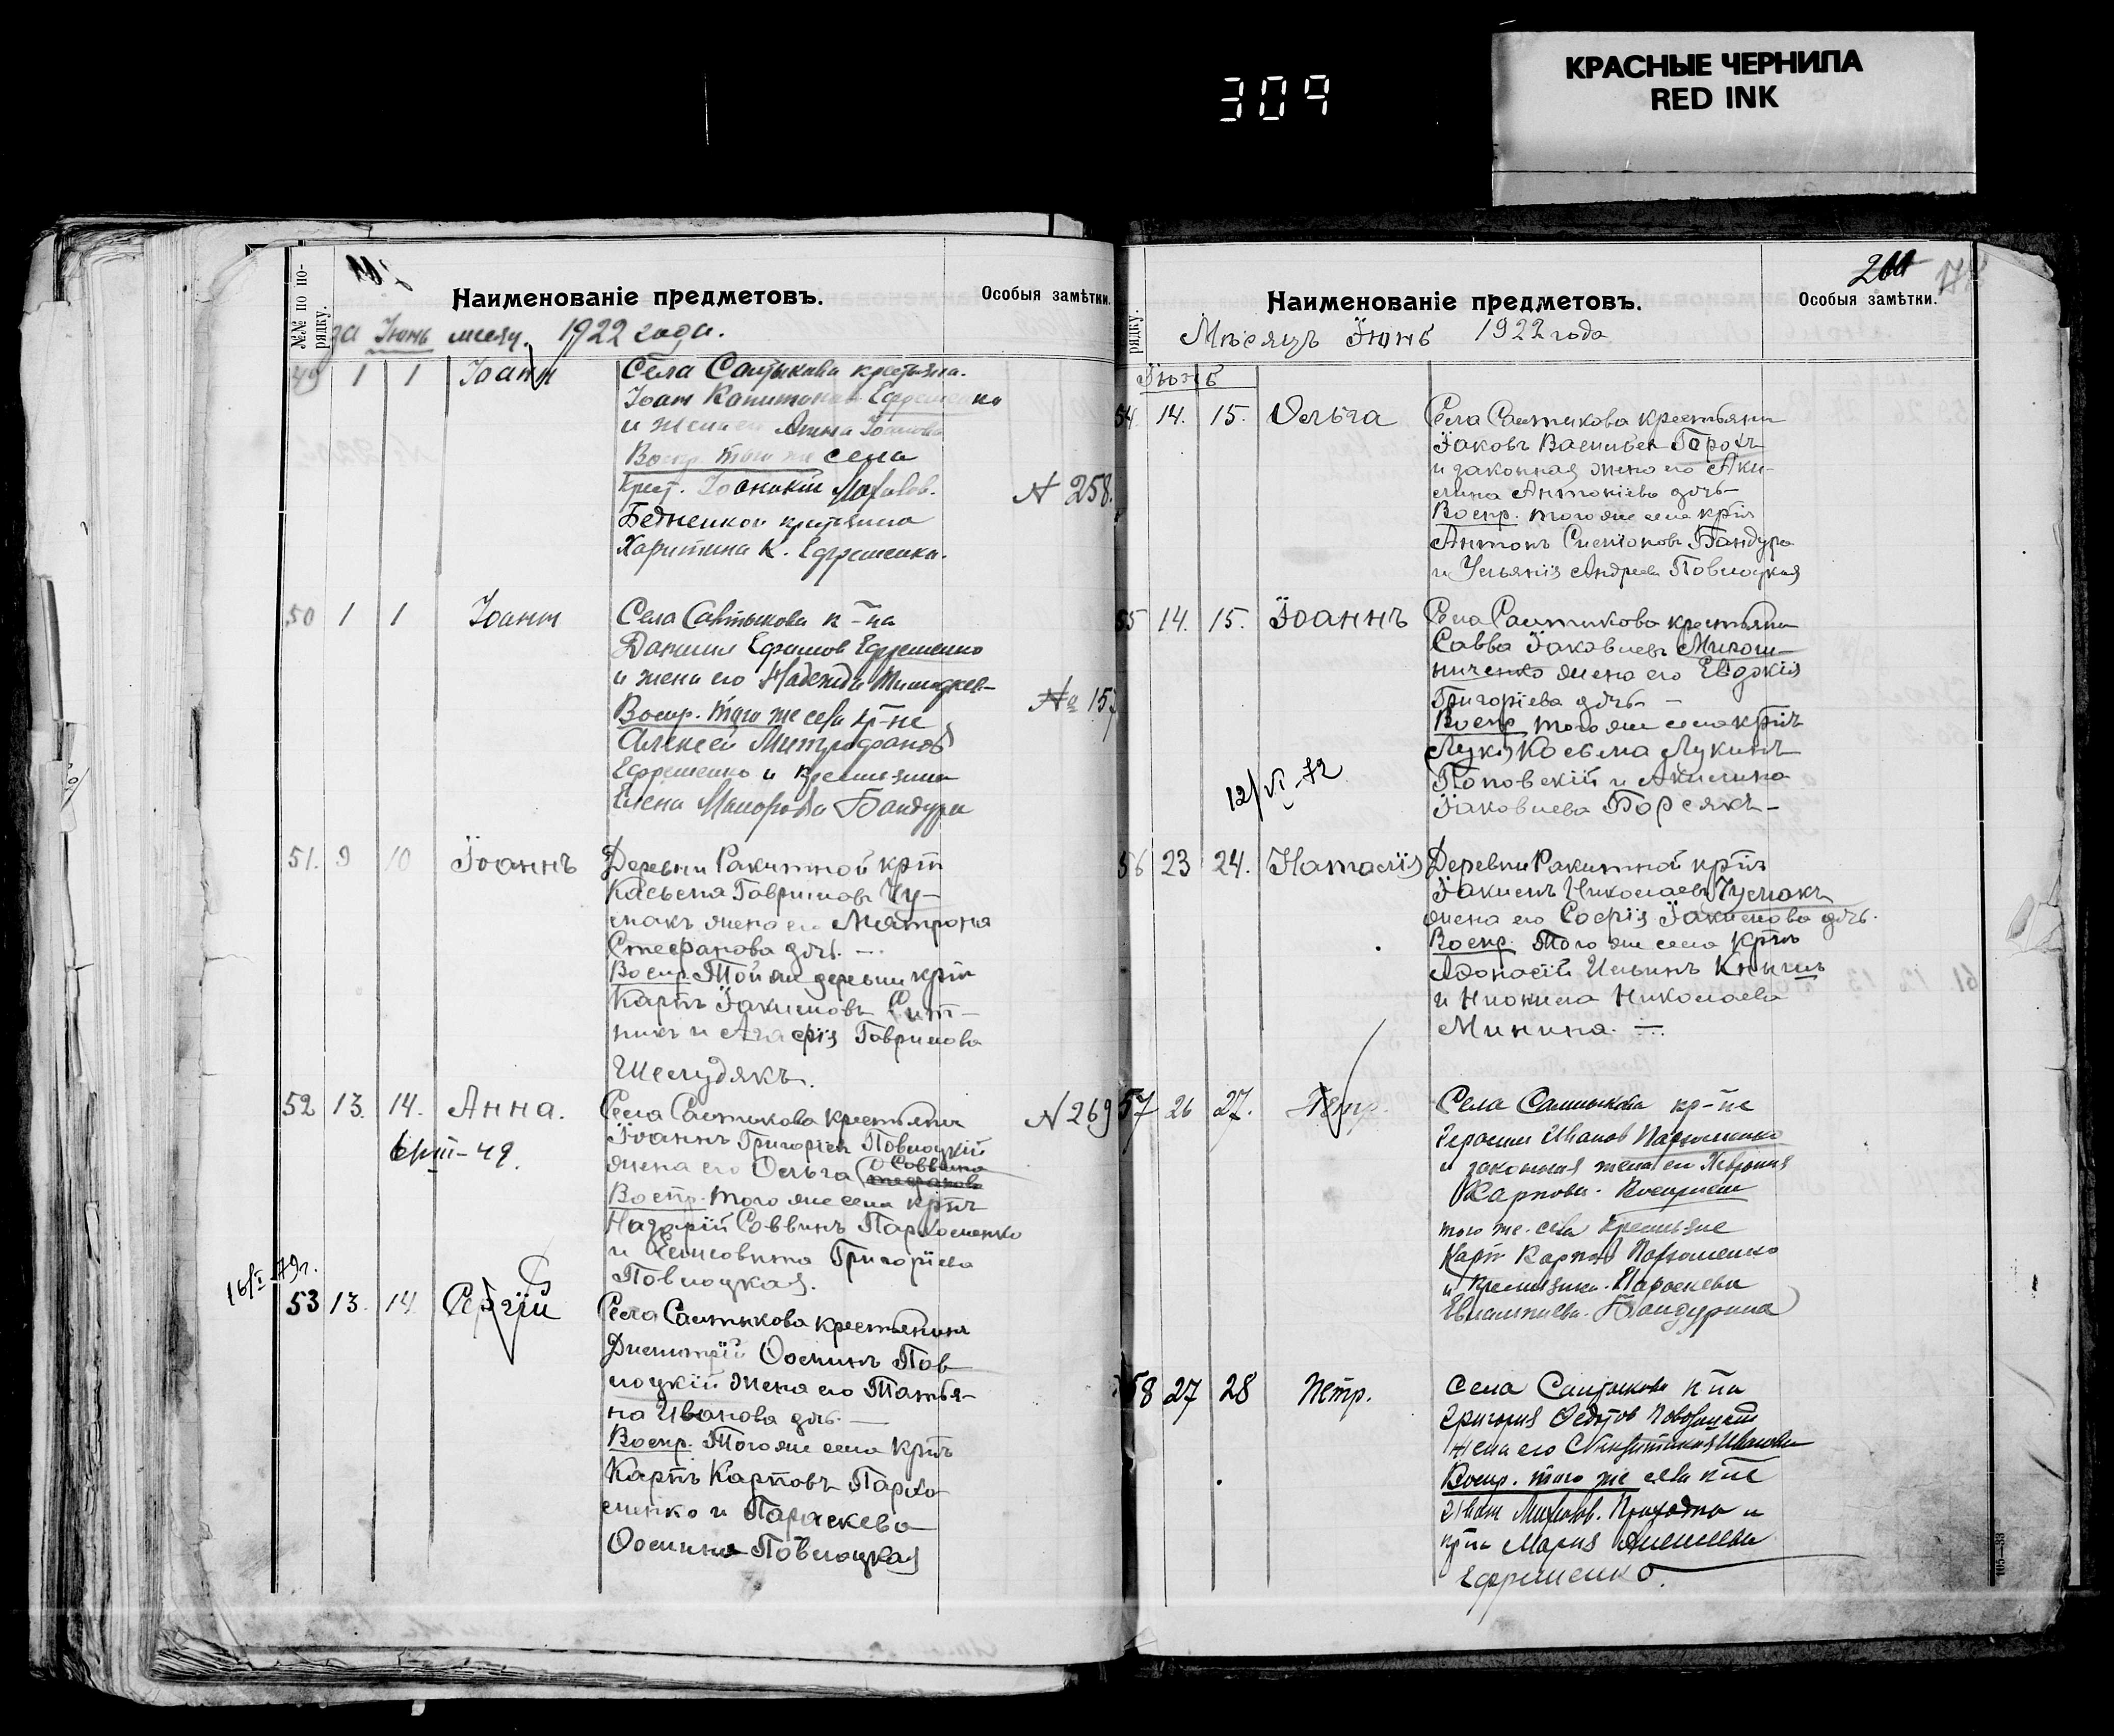 КРАСНЫЕ ЧЕРНИЛА
RED INK
309
№№ по по-
рядку.
Наименованіе предметовъ.
Особыя замѣтки.
за Іюнь месяц. 1922 года.
49 1 1 Іоанн
Села Салтыкова крестьяне
Іоан Капитонов Ефременко
и жена ег Анна
Воспр. того же села
Крест. Іоанкій
Бедненков крестьянка
Харитина К. Ефременко.
№ 258.
50 1 1 Іоанн
Села Салтыкова к-на
Даниил Ефимов Ефременко
и жена его Надежда
Воспр. того же села кр-не
Алексей Митрофанов
Ефременко и крестьянка
Елена Бандура
№ 157
51. 9 10 Іоаннъ
Деревни Ракитной крпн
Касьма Гавриловъ Чу-
макъ жена его Матрона
Стефанова дчь. —
Воспр. Той же деревни крпн
Карпъ Іакимовъ Сит-
никъ и Агафія Гаврилова
Шелудякъ.
52 13. 14. Анна.
Села Салтикова крестьянин
Іоаннъ Григоріев Повлоцкій
жена его Ольга Саввина
Воспр. того же села крпнъ
Назарій Саввинъ Пархоменко
и Елисовита Григоріева
Повлоцкая.
№ 269
16/I-79г.
53 13. 14. Сергій
Села Салтыкова крестьянинъ
Димитрій Фоминъ Пов-
лоцкій жена его Татья-
на Иванова дчь. —
Воспр. Того же села крпнъ
Карпъ Карповъ Пархо-
менко и Параскева
Фомина Повлоцкая
рядку.
Наименованіе предметовъ.
Особыя замѣтки.
Мѣсяцъ Іюнь 1922 года
Іюнь
54. 14. 15. Ольга
Села Салтикова крестьянин
Іаковъ Васильев Горохъ
и законная жена его Аки-
лина Антоніева дчь —
Воспр. того же села крпн
Антонъ Симіоновъ Бандура
и Ульянія Андреева Повлоцкая
55 14. 15. Іоаннъ
Села Салтикова крестьянин
Савва Іаковлевъ Мирош-
ниченко жена его Евдокія
Григоріева дчь —
Воспр. того же села крпнъ
Косьма Лукинъ
Поповскій и Акилина
Іаковлева Борсякъ —
12/VI-72
56 23 24. Наталія
Деревни Ракитной крпн
Іакимъ Николаевъ Чумакъ
жена его Софія Іакимова дчь.
Воспр. Того же села крпнъ
Афонасій Ильинъ Книшъ
и Неонила Николаева
Минина. —
57 26 27. Петр.
Села Салтыкова кр-не
Герасим Иванов Пархоменко
и законная жена ег Хеврония
Карпова. Восприем
того же села крестьяне
Карп Карпов Пархоменко
и крестьянка Параскева
Бандурина
58 27 28 Петр.
Села Салтыкова к-на
Григория Федотов Повлоцкий
жена его Иванова
Воспр. того же села к-не
Иван Михайлов. Приходько и
кр-на Мария
Ефременко.
105—83